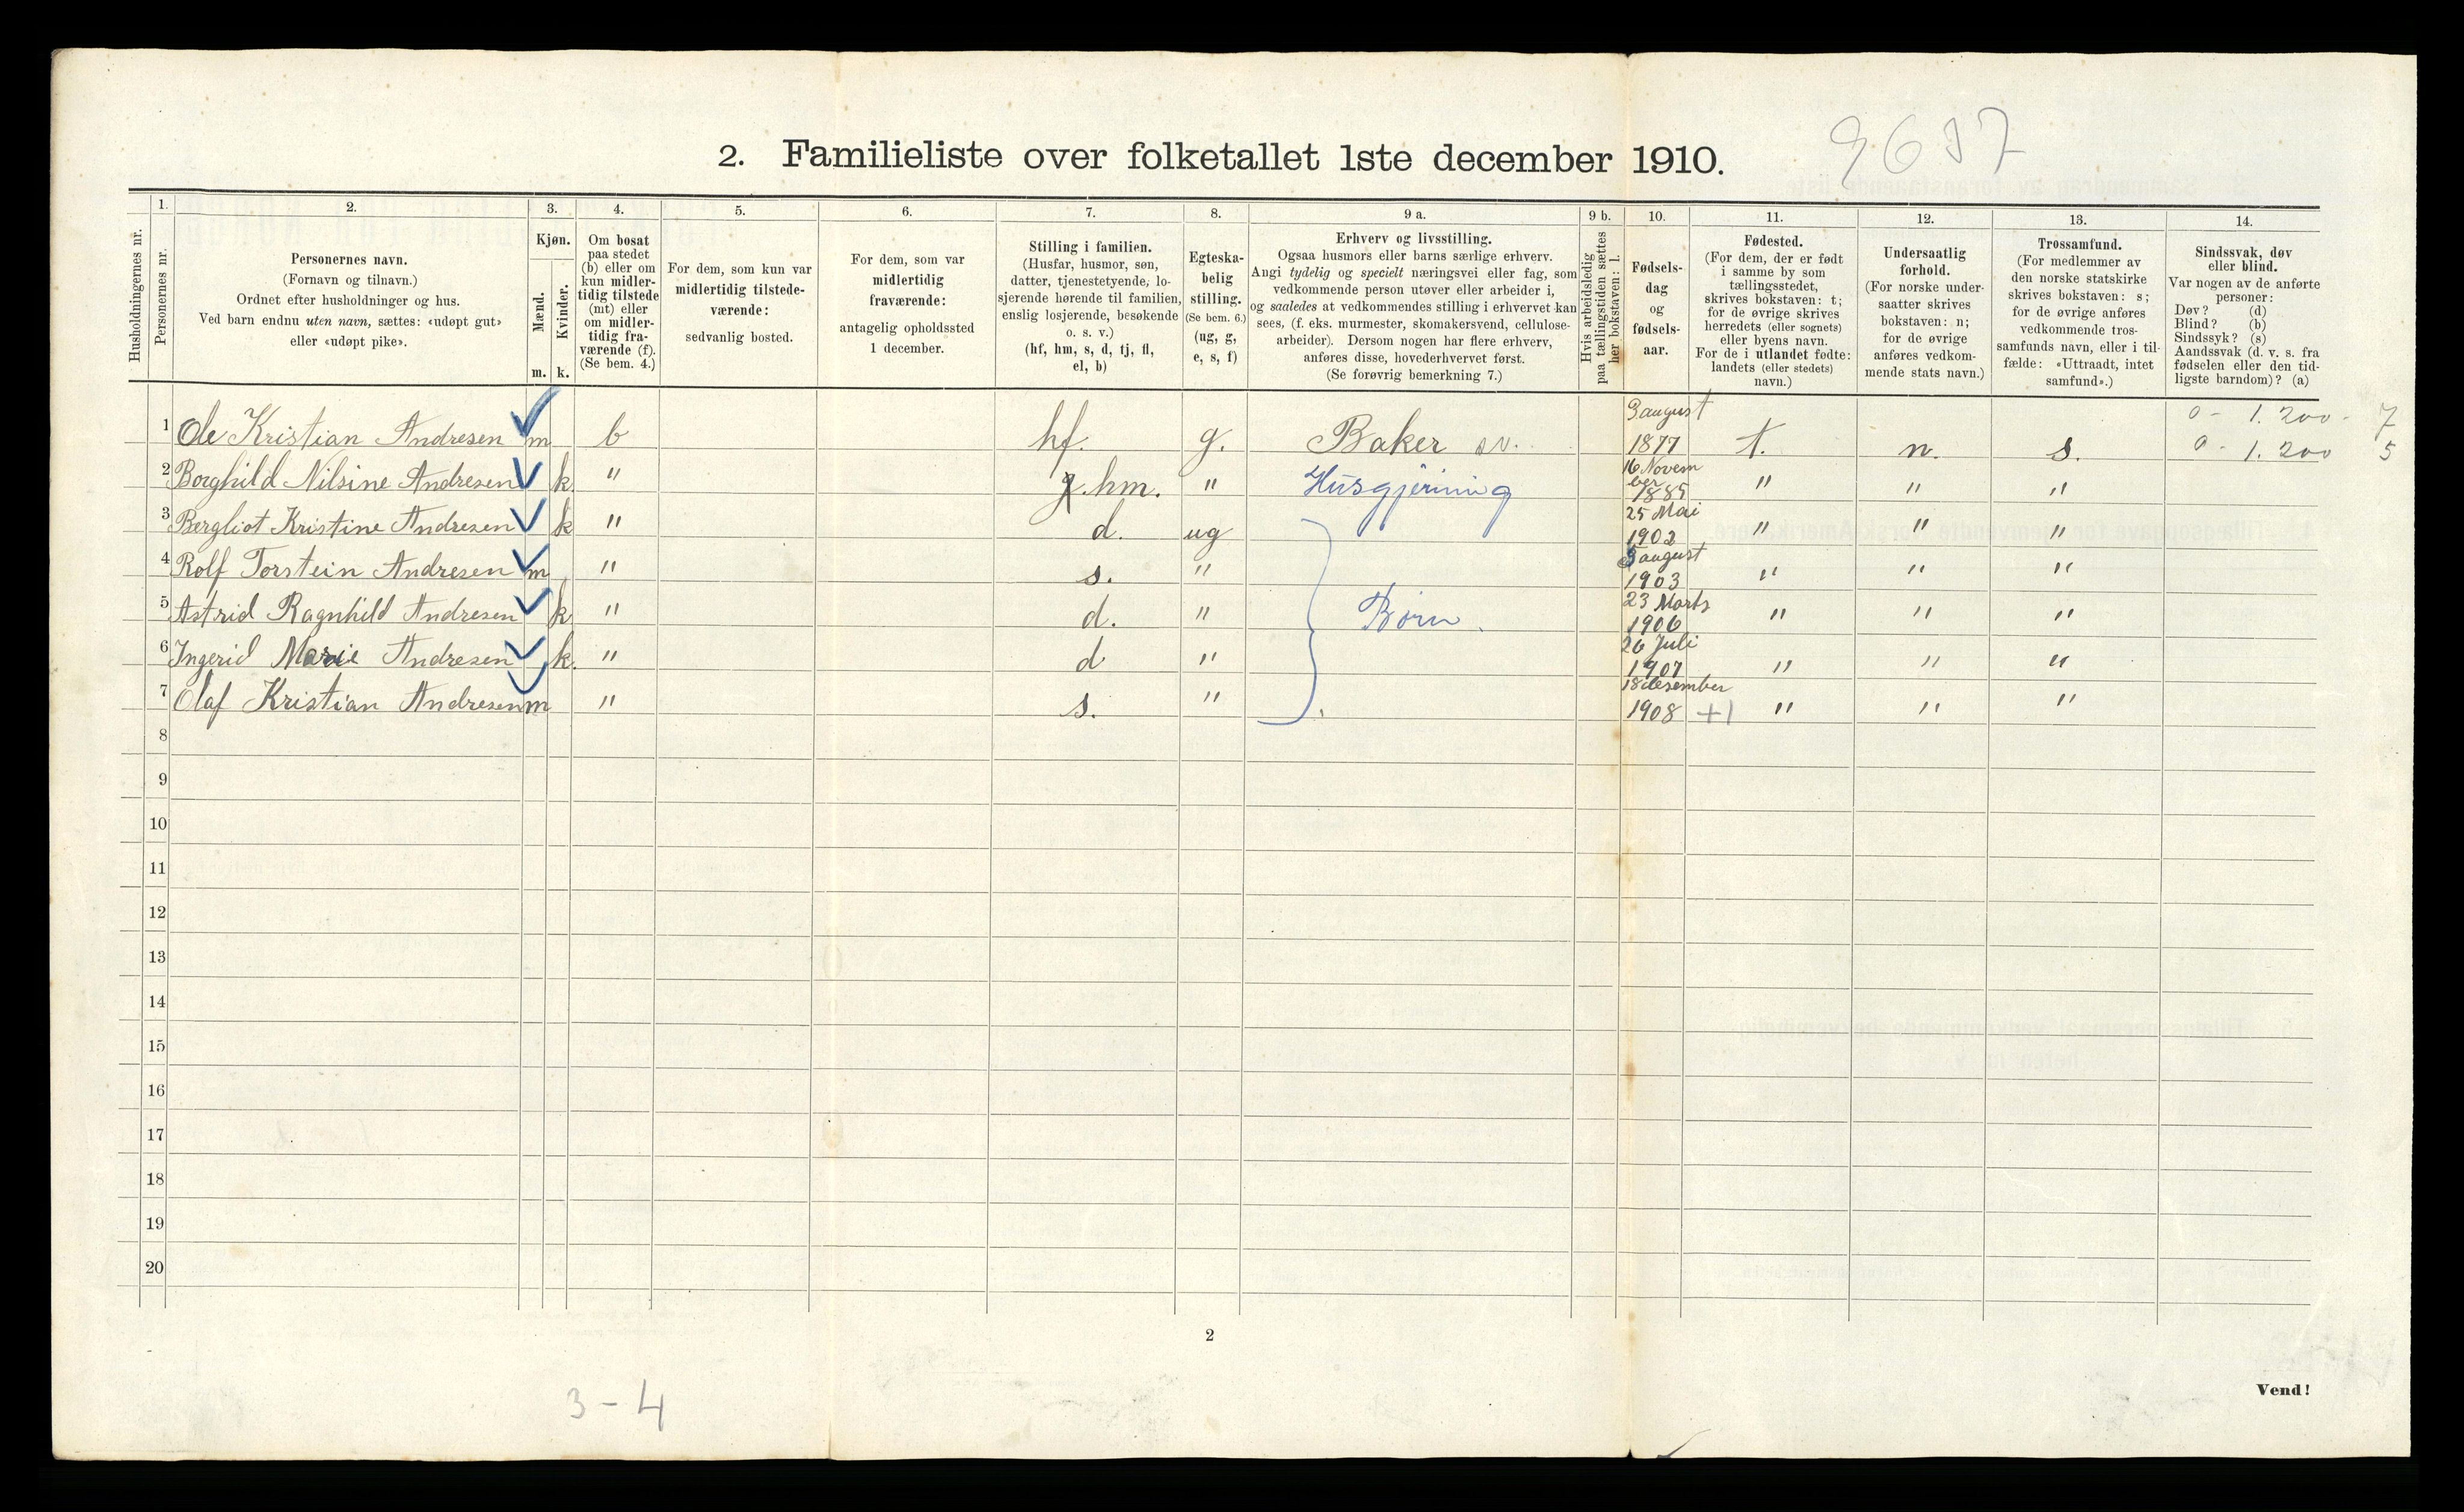 2. Familieliste over folketallet 1ste december 1910.
1. 2. 3. 4. 5. 6. 7. 8. 9 a. 9 b. 10. 11. 12. 13. 14.
Husholdningernes nr.
Personernes nr.
Personernes navn.
(Fornavn og tilnavn.)
Ordnet efter husholdninger og hus.
Ved barn endnu uten navn, sættes: «udøpt gut»
eller «udøpt pike».
Kjøn.
Mænd.
Kvinder.
m. k.
Om bosat
paa stedet
(b) eller om
kun midler-
tidig tilstede
(mt) eller
om midler-
tidig fra-
værende (f).
(Se bem. 4.)
For dem, som kun var
midlertidig tilstede-
værende:
sedvanlig bosted.
For dem, som var
midlertidig
fraværende:
antagelig opholdssted
1 december.
Stilling i familien.
(Husfar, husmor, søn,
datter, tjenestetyende, lo-
sjerende hørende til familien,
enslig losjerende, besøkende
o. s. v.)
(hf, hm, s, d, tj, fl,
el, b)
Egteska-
belig
stilling.
(Se bem. 6.)
(ug, g,
e, s, f)
Erhverv og livsstilling.
Ogsaa husmors eller barns særlige erhverv.
Angi tydelig og specielt næringsvei eller fag, som
vedkommende person utøver eller arbeider i,
og saaledes at vedkommendes stilling i erhvervet kan
sees, (f. eks. murmester, skomakersvend, cellulose-
arbeider). Dersom nogen har flere erhverv,
anføres disse, hovederhvervet først.
(Se forøvrig bemerkning 7.)
Hvis arbeidsledig
paa tællingstiden sættes
her bokstaven: l.
Fødsels-
dag
og
fødsels-
aar.
Fødested.
(For dem, der er født
i samme by som
tællingsstedet,
skrives bokstaven: t;
for de øvrige skrives
herredets (eller sognets)
eller byens navn.
For de i utlandet fødte:
landets (eller stedets)
navn.)
Undersaatlig
forhold.
(For norske under-
saatter skrives
bokstaven: n;
for de øvrige
anføres vedkom-
mende stats navn.)
Trossamfund.
(For medlemmer av
den norske statskirke
skrives bokstaven: s;
for de øvrige anføres
vedkommende tros-
samfunds navn, eller i til-
fælde: «Uttraadt, intet
samfund».)
Sindssvak, døv
eller blind.
Var nogen av de anførte
personer:
Døv? (d)
Blind? (b)
Sindssyk? (s)
Aandssvak (d. v. s. fra
fødselen eller den tid-
ligste barndom)? (a)
0 - 1.200 - 7
0 - 1.200 5
1 Ole Kristian Andresen m b hf. g. Baker sv. 3 august 1877 t. n. s.
2 Borghild Nilsine Andresen k " hm. " Husgjerning 16 November 1885 " " "
3 Bergliot Kristine Andresen k " d. ug 25 Mai 1902 " " "
4 Rolf Torstein Andresen m " s. " august 1903 " " "
5 Astrid Ragnhild Andresen k " d. " Børn. 23 Marts 1906 " " "
6 Ingerid Marie Andresen k. " d " 26 Juli 1907 " " "
7 Olaf Kristian Andresen m " s. " 18 desember 1908 +1 " " "
8
9
10
11
12
13
14
15
16
17
18
19
20
2
3 - 4
Vend!